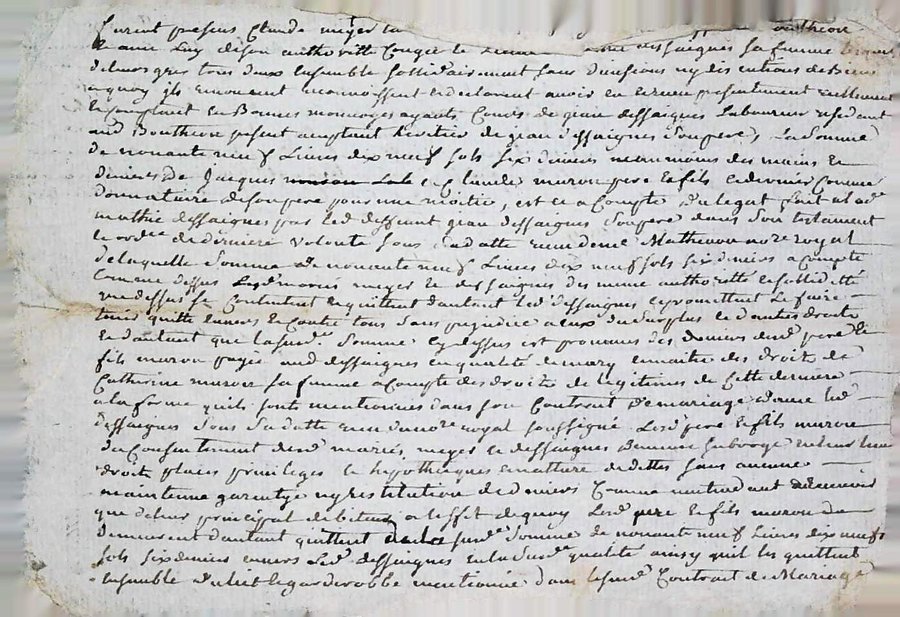 furent presens Claude meyer
& anne luy de son authoritté Conger le lieun dessaignes sa femme
de leurs gres tous deux ensemble sollidairement sans divisions ny discutions de Biens
a quoy ils renoncent reconnoissent et declarent avoir eu et receu presentement reellement
et comptant en Bonnes monnoyes ayants Cours de jean dessaignes Laboureur residant
aud Boutheon present acceptant heritier de jean dessaignes son pere, La Somme
de nonante neuf Livres dix neuf sols six deniers neanmoins des mains et
deniers de Jacques et Claude muron pere et fils le dernier comme
donnataire de son pere pour une moitié, est ce a Compte du legat fait a lad
mathie dessaignes par led deffunt jean dessaignes son pere dans son testament
et ordce de derniere volonté sous sa datte receu de me Matheuon nore royal
de laquelle Somme de nonante neuf Livres dix neuf sols six deniers a compte
Comme dessus Lesd mariés meyer et dessaignes des meme authoritté et sollidité
que dessus se Contentent et quittent d'autant led dessaignes et promettent le faire
tenir quitte envers et Contre tous sans prejudice a eux du surplus et d'autres droits
et d'autant que lasusd Somme cy dessus est provenue des deniers desd pere et
fils muron payés aud dessaignes en qualité de mary et maitre des droits de
Catherine muron sa femme a compte des droits de legitimes de Cette derniere
a la forme quils sont mentionnés dans son Contract de mariage avec led
dessaignes sous sa datte receu du nore royal soussigné Lesd pere et fils muron
du Consentement desd mariés meyer et dessaignes demeure subrogé en leur lieu
droits places privileges et hypotheques et nature de dettes sans aucune
maintenue garentye ny restitution de deniers Comme n'entendant
que de leur principal debiteur a l'effet de quoy Lesd pere et fils muron
demeurent d'autant quittent de la susd Somme de nonante neuf Livres dix neuf
sols six deniers envers Led dessaignes en la susd qualité ainsy quil les quittent
ensemble du lit et garderobbe mentionné dans le susd Contract de Mariage